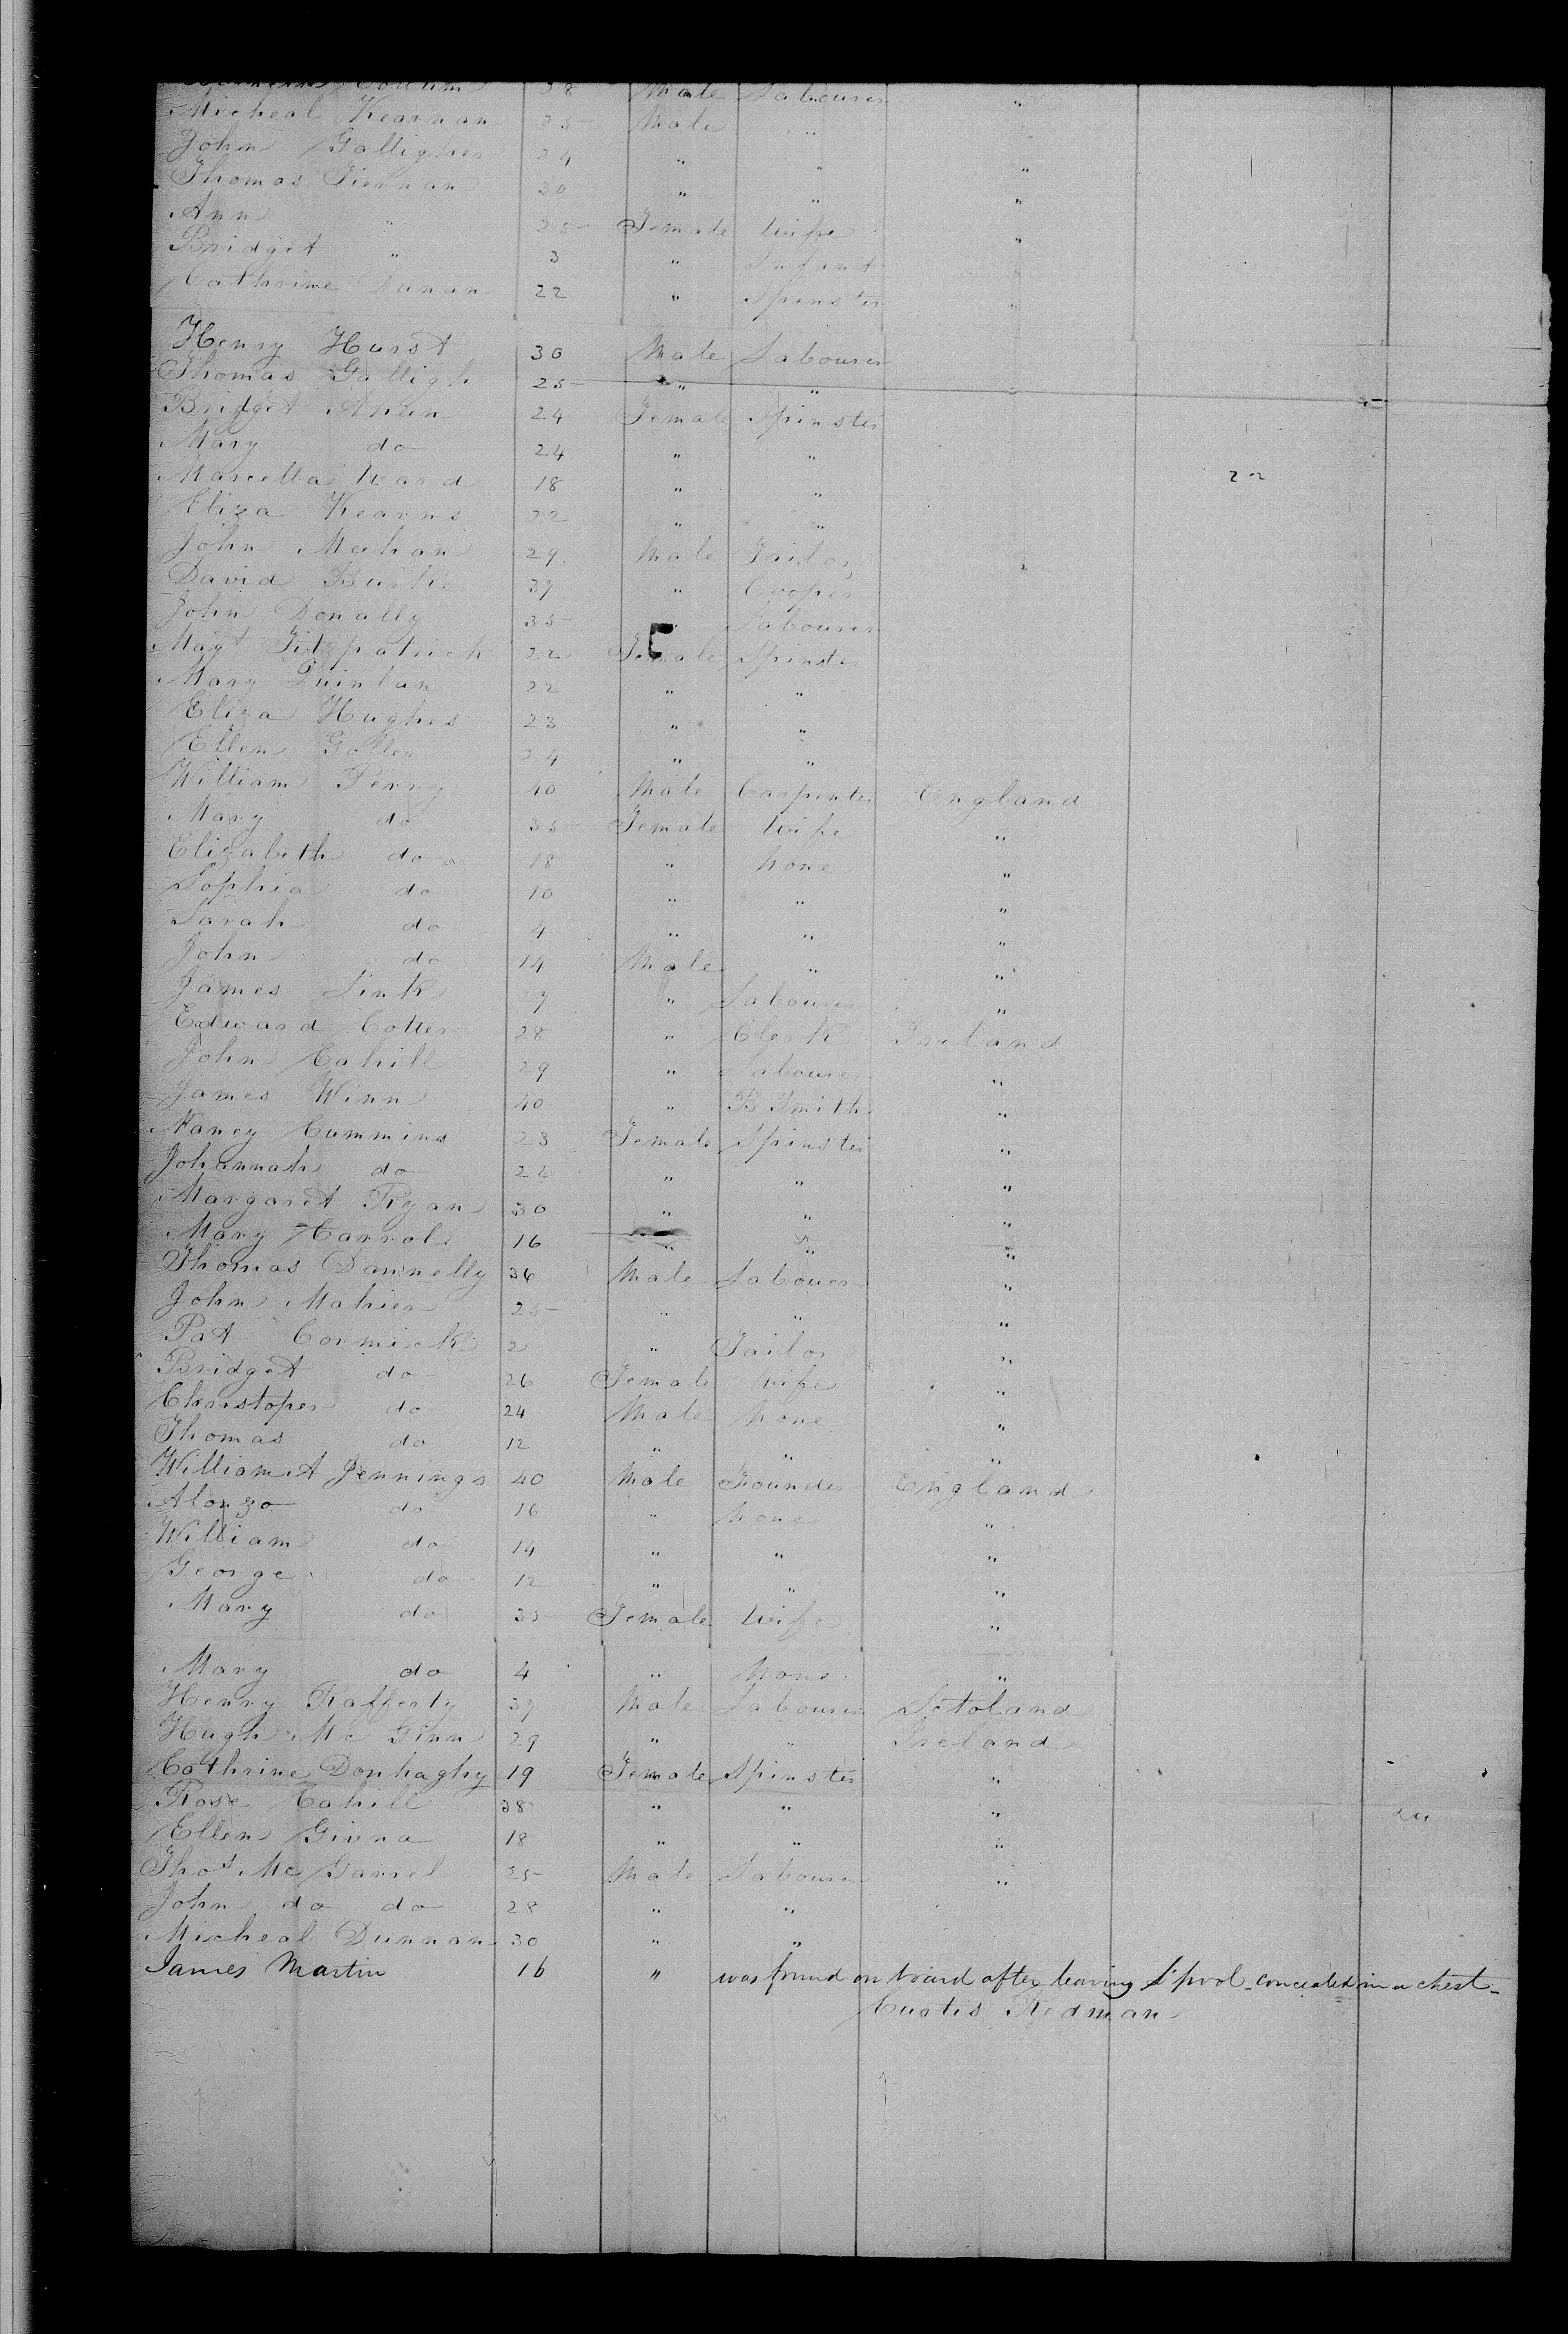 38 Male Labourer "
Micheal Kearnan 25 Male "
John Galligher 24 " " "
Thomas Tiernan 30 " " "
Ann " 25 Female Wife "
Bridget " 3 " Infant "
Cathrine Dunan 22 " Spinster "
Henry Hurst 30 Male Labourer
Thomas Galligh 25 " "
Bridget Ahern 24 Female Spinster
Mary do 24 " "
Marcella Ward 18 " " 22
Eliza Kearns 22 " "
John Meehan 29 Male Tailor
David Burke 39 " Cooper
John Donally 35 " Labourer
Magt Fitzpatrick 22 Female Spinster
Mary Quinlan 22 " "
Eliza Hughes 23 " "
Ellen 24 " "
William Perry 40 Male Carpenter England
Mary do 35 Female Wife "
Elizabeth do 18 " None "
Sophia do 10 " " "
Sarah do 4 " " "
John do 14 Male " "
James Sink " Labourer "
Edward Cotter 28 " Clerk Ireland
John Cahill 29 " Labourer "
James Winn 40 " B Smith "
Nancy Cummins 23 Female Spinster "
Johannah do 24 " " "
Margaret Ryan 30 " " "
Mary Carrol 16 " " "
Thomas Dannelly 36 Male Labouer "
John Maher 25 " " "
Pat Cormick 2 " Tailor "
Bridget do 26 Female Wife "
Christoper do 24 Male None "
Thomas do 12 " " "
William A Jennings 40 Male Founder England
Alonzo do 16 " None "
William do 14 " " "
George do 12 " " "
Mary do 35 Female Wife "
Mary do 4 " None "
Henry Rafferty 39 Male Labourer Scotland
Hugh Mc Ginn 29 " " Ireland
Cathrine Donhaghy 19 Female Spinster "
Rose Cahill 38 " " "
Ellen Givna 18 " " "
Thos Mc Garrel 25 Male Labourer "
John do do 28 " "
Micheal Dunnan 30 " "
James Martin 16 " was found on board after leaving L'pool - concealed in a chest -
Curtis Redman